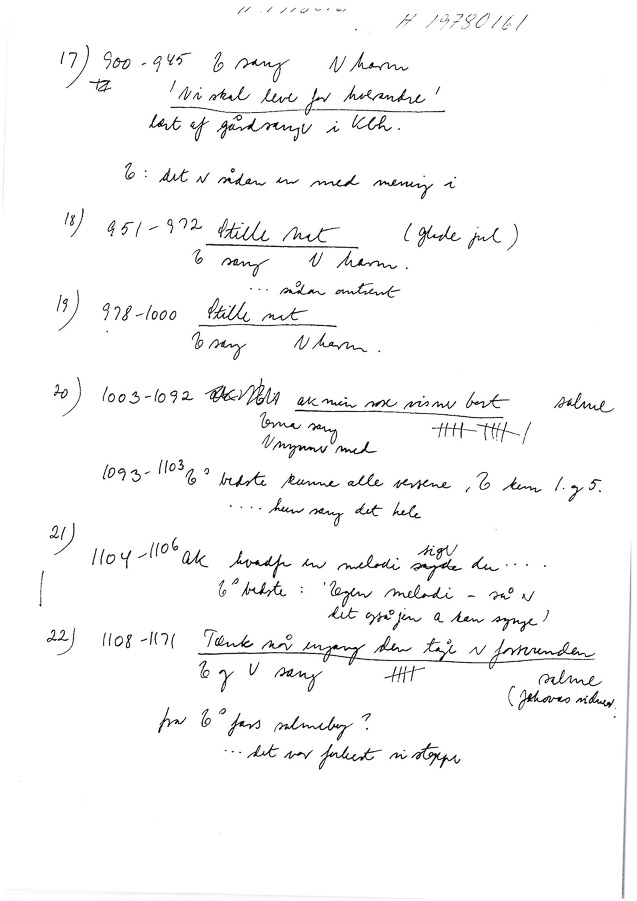 H 19780161
17) 900-945 E sang V harm
'Vi skal leve for hverandre'
lært af gårdsanger i Kbh.
E: det er sådan en med mening i
18) 951-972 Stille nat (glade jul)
E sang V harm.
... sådan omtrent
19) 978-1000 Stille nat
E sang V harm.
20) 1003-1092 ak min rose visner bort salme
Erna sang
V nynner med
1093-1103 E° bedste kunne alle versene, E kun 1. og 5.
.... hun sang det hele
21)
1104-1106 ak hvadfor en melodi siger du ....
E° bedste: 'Egen melodi - så er
det også jen a kan synge'
22) 1108-1171 Tænk når engang den tåge er forsvunden
E og V sang salme
(Jehovas vidner.
fra E° fars salmebog?
... det var forkert vi stoppe